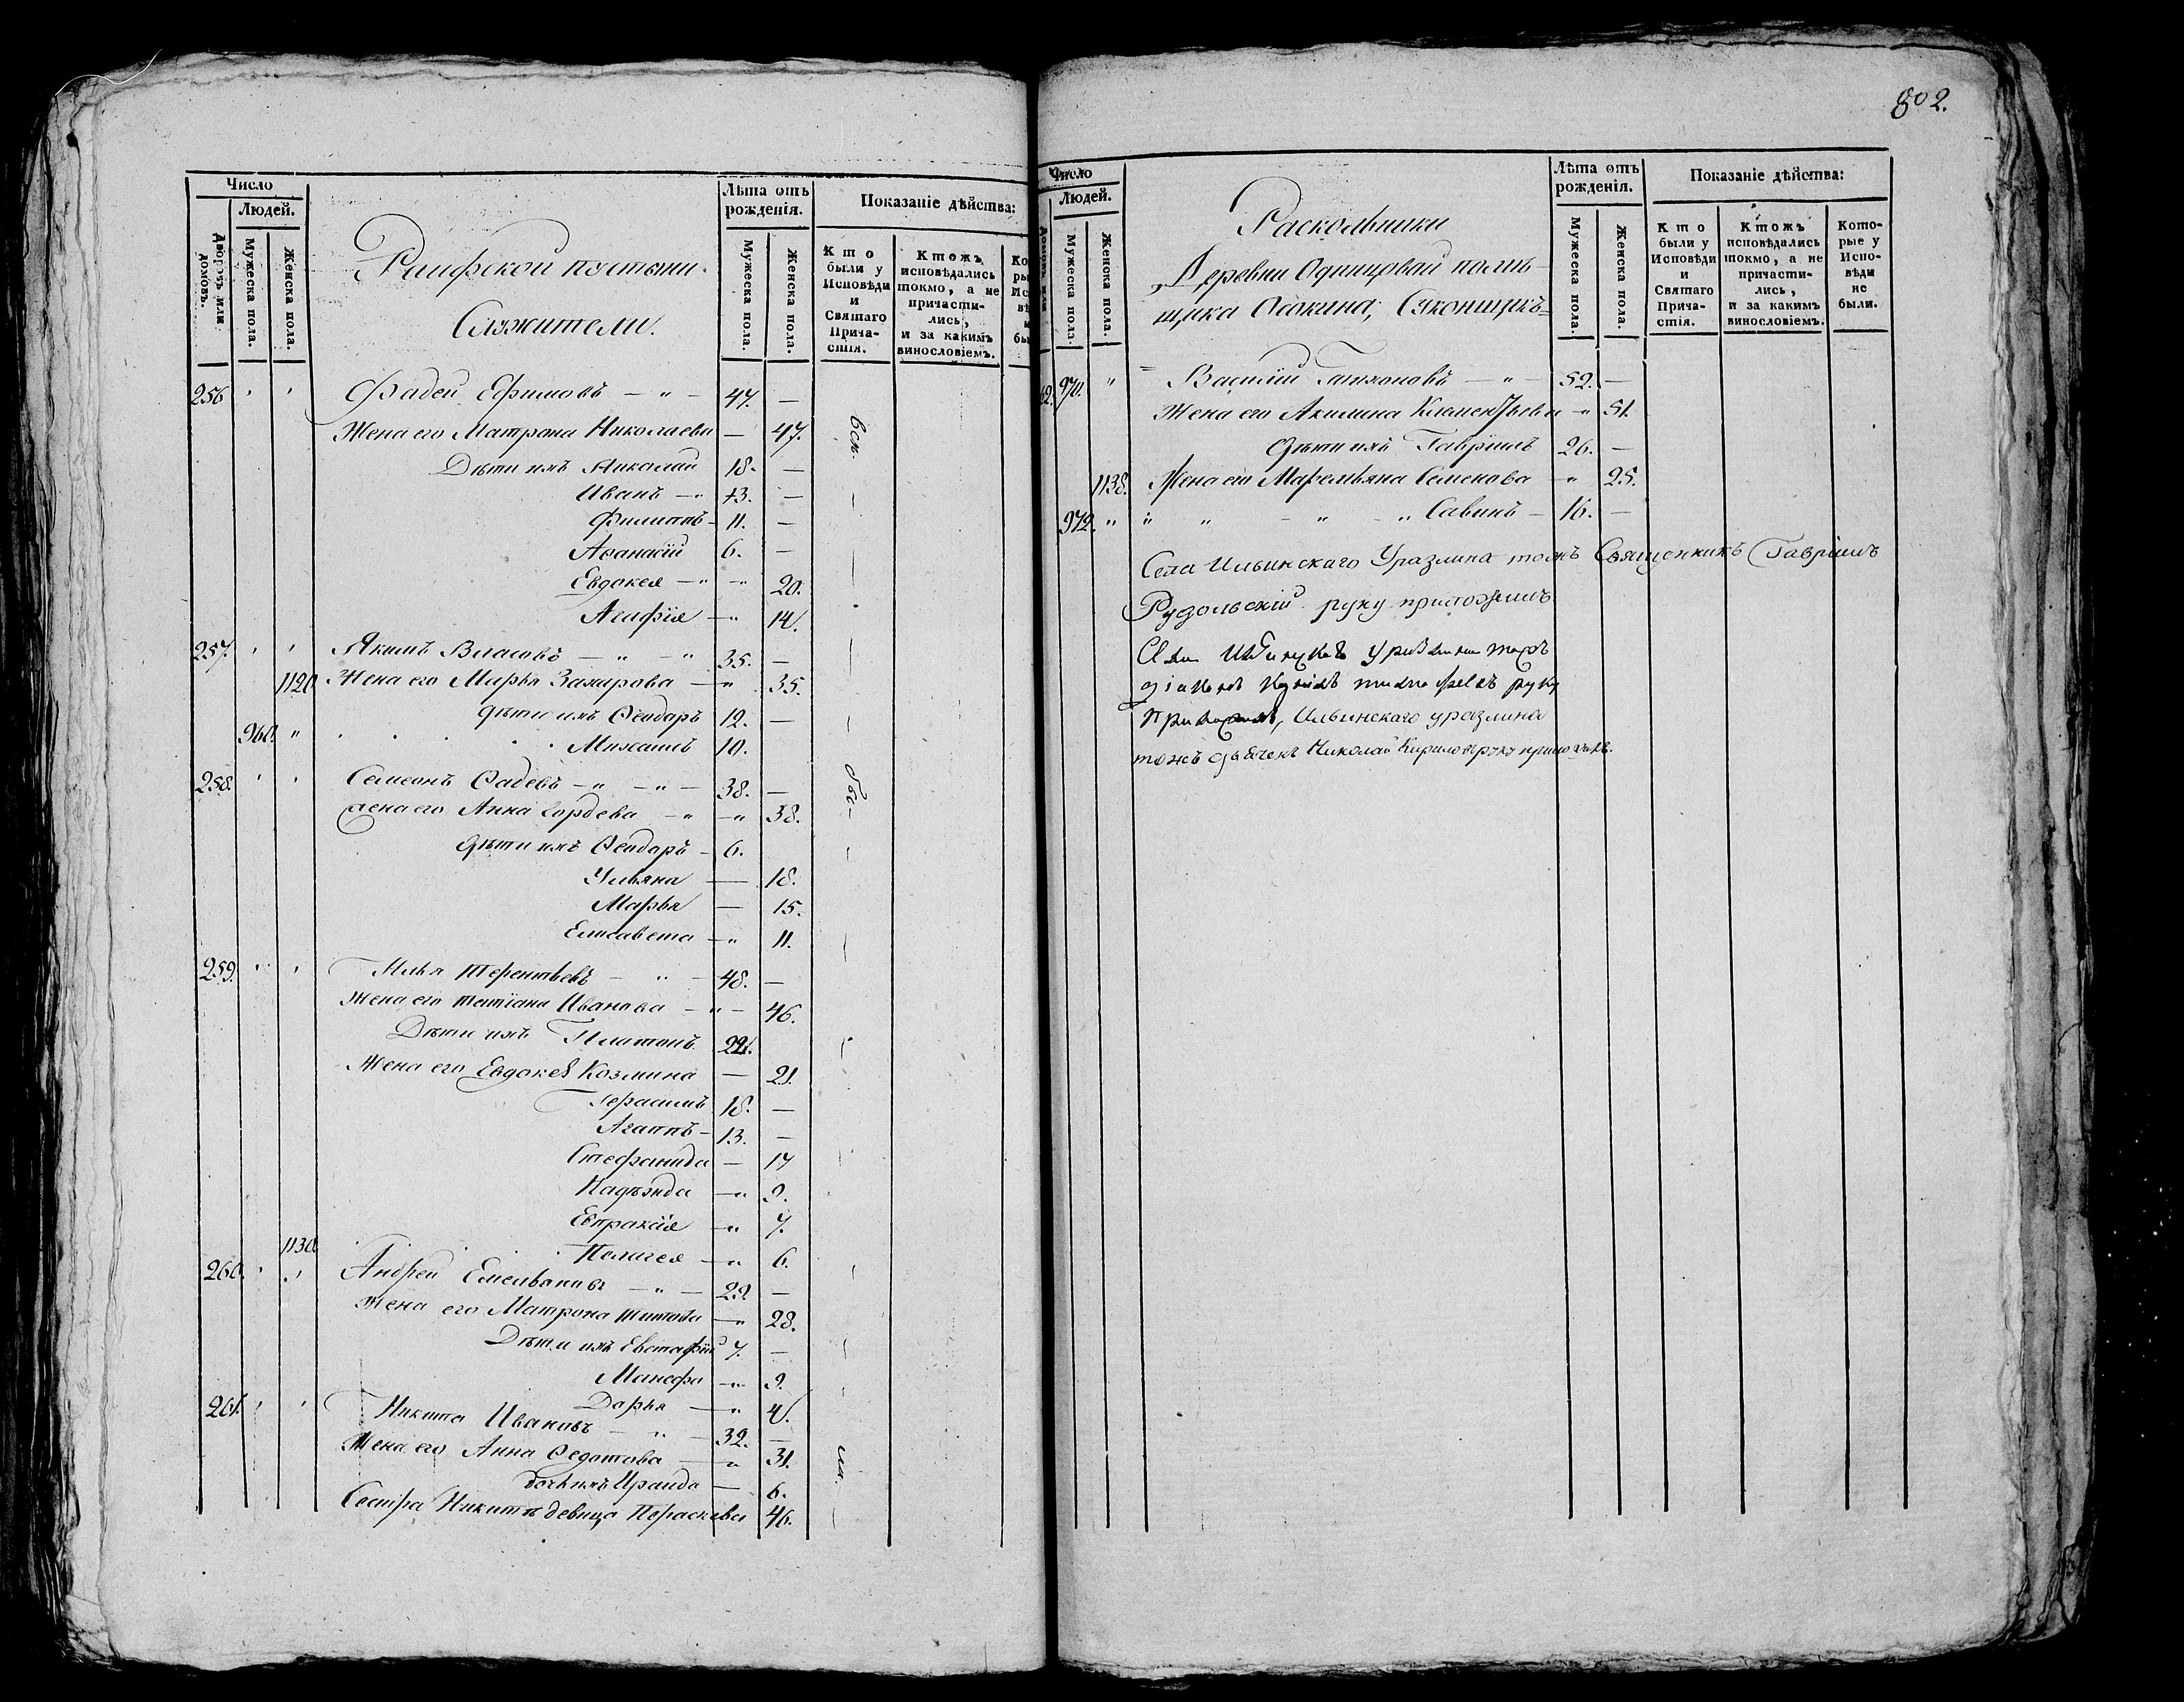 Число
Людей.
Дворовъ или домовъ.
Мужеска пола.
Женска пола.
Раифской пустыни
Служители.
Лѣта отъ рожденія.
Мужеска пола.
Женска пола.
Показаніе дѣйства:
Кто были у Исповѣди и Святаго Прича- стія.
Ктожъ исповѣдались токмо, а не причасти- лись, и за какимъ винословіемъ.
256 Фадей Ефимовъ — „ — 47. —
Жена его Матрона Николаева — 47.
Дѣти ихъ Николай 18. —
Иванъ — „ 13. —
Филиппъ — 11. —
Аѳанасій 6. —
Евдокея — „ — „ 20.
Агафія — „ 14.
257. Якимъ Власовъ — „ — „ 35. —
1120 Жена его Марья Захарова — „ 35.
дѣти ихъ Ѳеодоръ 12. —
960. „ Михаилъ 10.
258. Семенъ Фадеевъ — „ — „ — 38. —
жена его Анна Гордева — „ — „ 38.
дѣти ихъ Ѳеодоръ — 6.
Ульяна — 18.
Марья — 15.
Елисавета — „ 11.
259. Илья Терентьевъ — „ — 48. —
Жена его Татіана Иванова — „ — 46.
Дѣти ихъ Платонъ 22.
Жена его Евдокея Козмина — 21.
Герасимъ 18. —
Агаппъ — 13. —
Стефанида — 17
Надѣжда — „ 9.
Евпраксія — „ 7.
1130. Пелагея — „ 6.
260. Андрей Емельяновъ — „ — 29. —
Жена его Матрона Титова — „ 28.
Дѣти ихъ Евстафій 7. —
Манефа — „ 9.
Дарья — „ 4.
261. Никита Ивановъ — „ — 32. —
Жена его Анна Ѳедотова — „ 31.
дочь ихъ Ираида — 6.
Сестра Никиты девица Пераскева 46.
всѣ
бы-
ли.
802.
Число
Людей.
Мужеска пола.
Женска пола.
Раскольники
Деревни Одинцовай помѣ-
щика Осокина, Суконщикъ
Лѣта отъ рожденія.
Мужеска пола.
Женска пола.
Показаніе дѣйства:
Кто были у Исповѣди и Святаго Прича- стія.
Ктожъ исповѣдались токмо, а не причасти- лись, и за какимъ винословіемъ.
Кото- рые у Испо- вѣди не были.
970. „ Василій Тихоновъ — „ — 52. —
Жена его Акилина Клементьева — „ 51.
Дѣти ихъ Гавріилъ 26. —
1138. Жена его Маремьяна Семенова — „ 25.
972. „ „ „ — „ — „ Савинъ — 16. —
Села Ильинскаго Уразлина тожъ Священникъ Гавріилъ
Рудольскій руку приложилъ
Села Уразлина тожъ
діаконъ руку
приложилъ, Ильинскаго уразлина
тожъ дьячекъ Николай Кириловъ руку приложилъ.